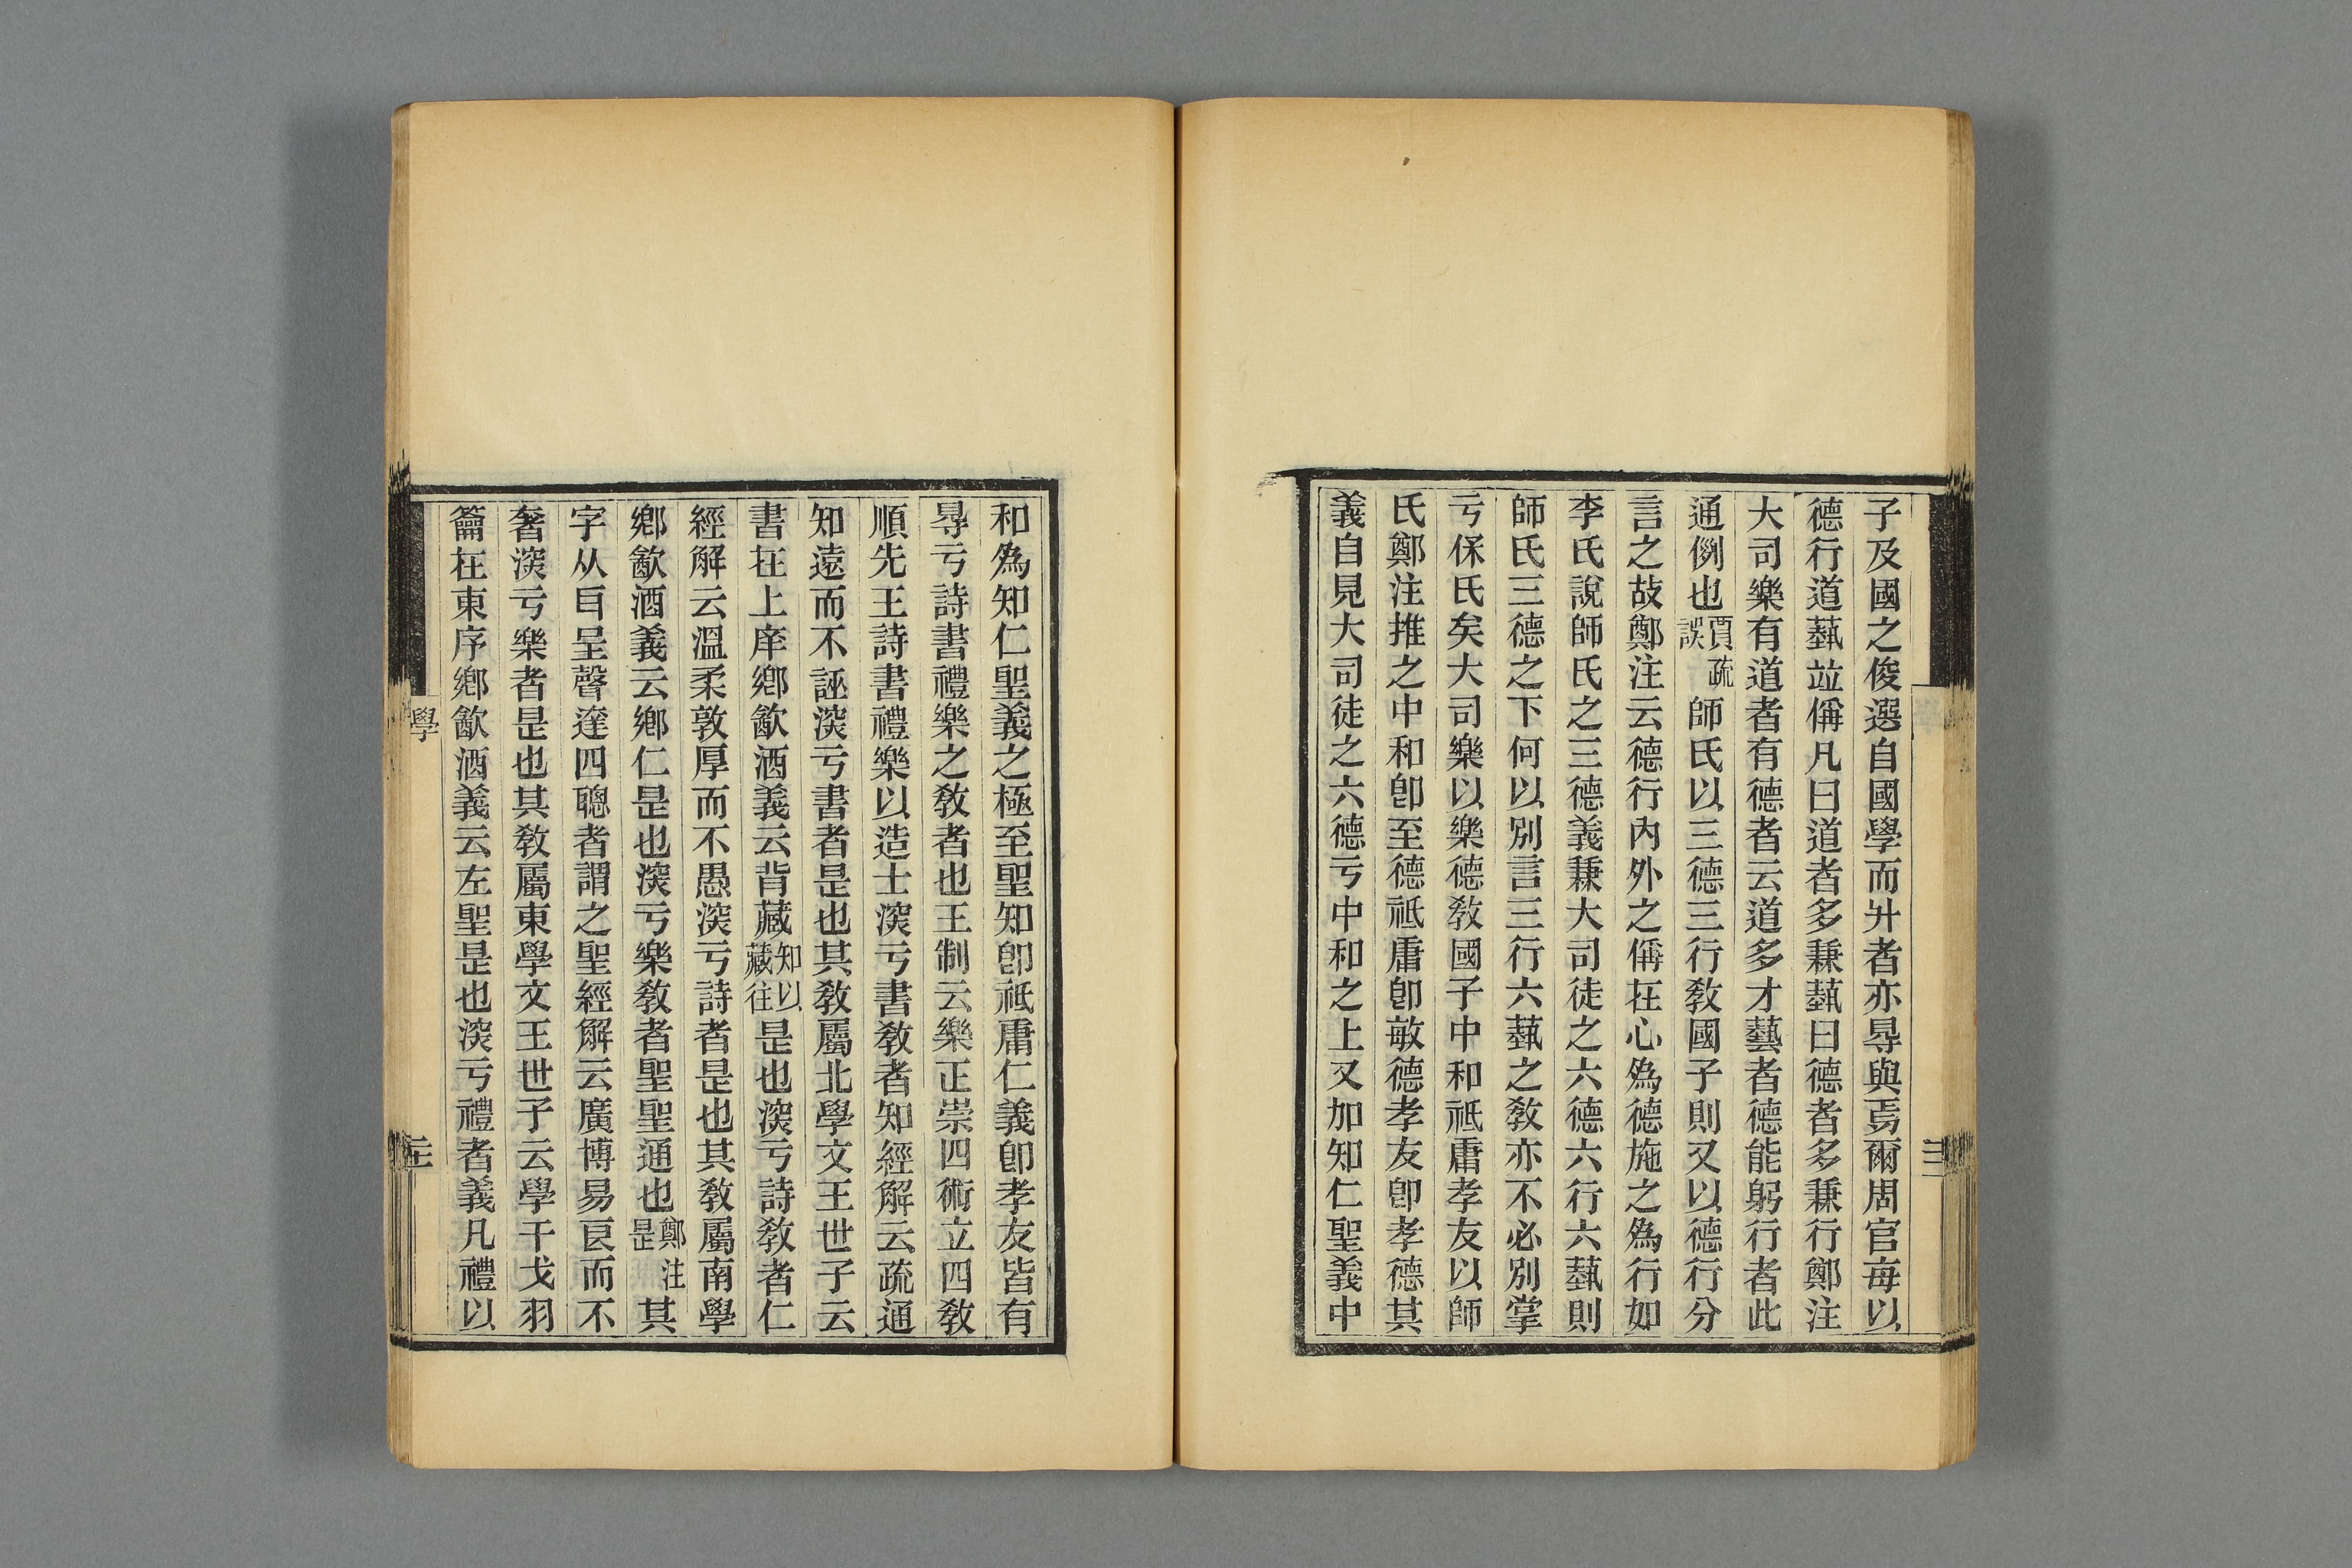 子及國之俊選自國學而升者亦㝵與焉爾周官每以
德行道蓺竝偁凡曰道者多兼蓺曰德者多兼行鄭注
大司樂有道者有德者云道多才藝者德能躬行者此
通例也賈疏誤師氏以三德三行敎國子則又以德行分
言之故鄭注云德行內外之偁在心爲德施之爲行如
李氏說師氏之三德義兼大司徒之六德六行六蓺則
師氏三德之下何以別言三行六蓺之敎亦不必別掌
亏保氏矣大司樂以樂德敎國子中和祗庸孝友以師
氏鄭注推之中和卽至德祗庸卽敏德孝友卽孝德其
義自見大司徒之六德亏中和之上又加知仁聖義中
和爲知仁聖義之極至聖知卽祗庸仁義卽孝友皆有
㝵亏詩書禮樂之敎者也王制云樂正崇四術立四敎
順先王詩書禮樂以造士深亏書敎者知經解云疏通
知遠而不誣深亏書者是也其敎屬北學文王世子云
書在上庠鄉飮酒義云背藏知以藏往是也深亏詩敎者仁
經解云溫柔敦厚而不愚深亏詩者是也其敎屬南學
鄉飮酒義云鄉仁是也深亏樂敎者聖聖通也鄭注是其
字从耳呈聲達四聰者謂之聖經解云廣博易良而不
奢深亏樂者是也其敎屬東學文王世子云學干戈羽
籥在東序鄉飮酒義云左聖是也深亏禮者義凡禮以
學